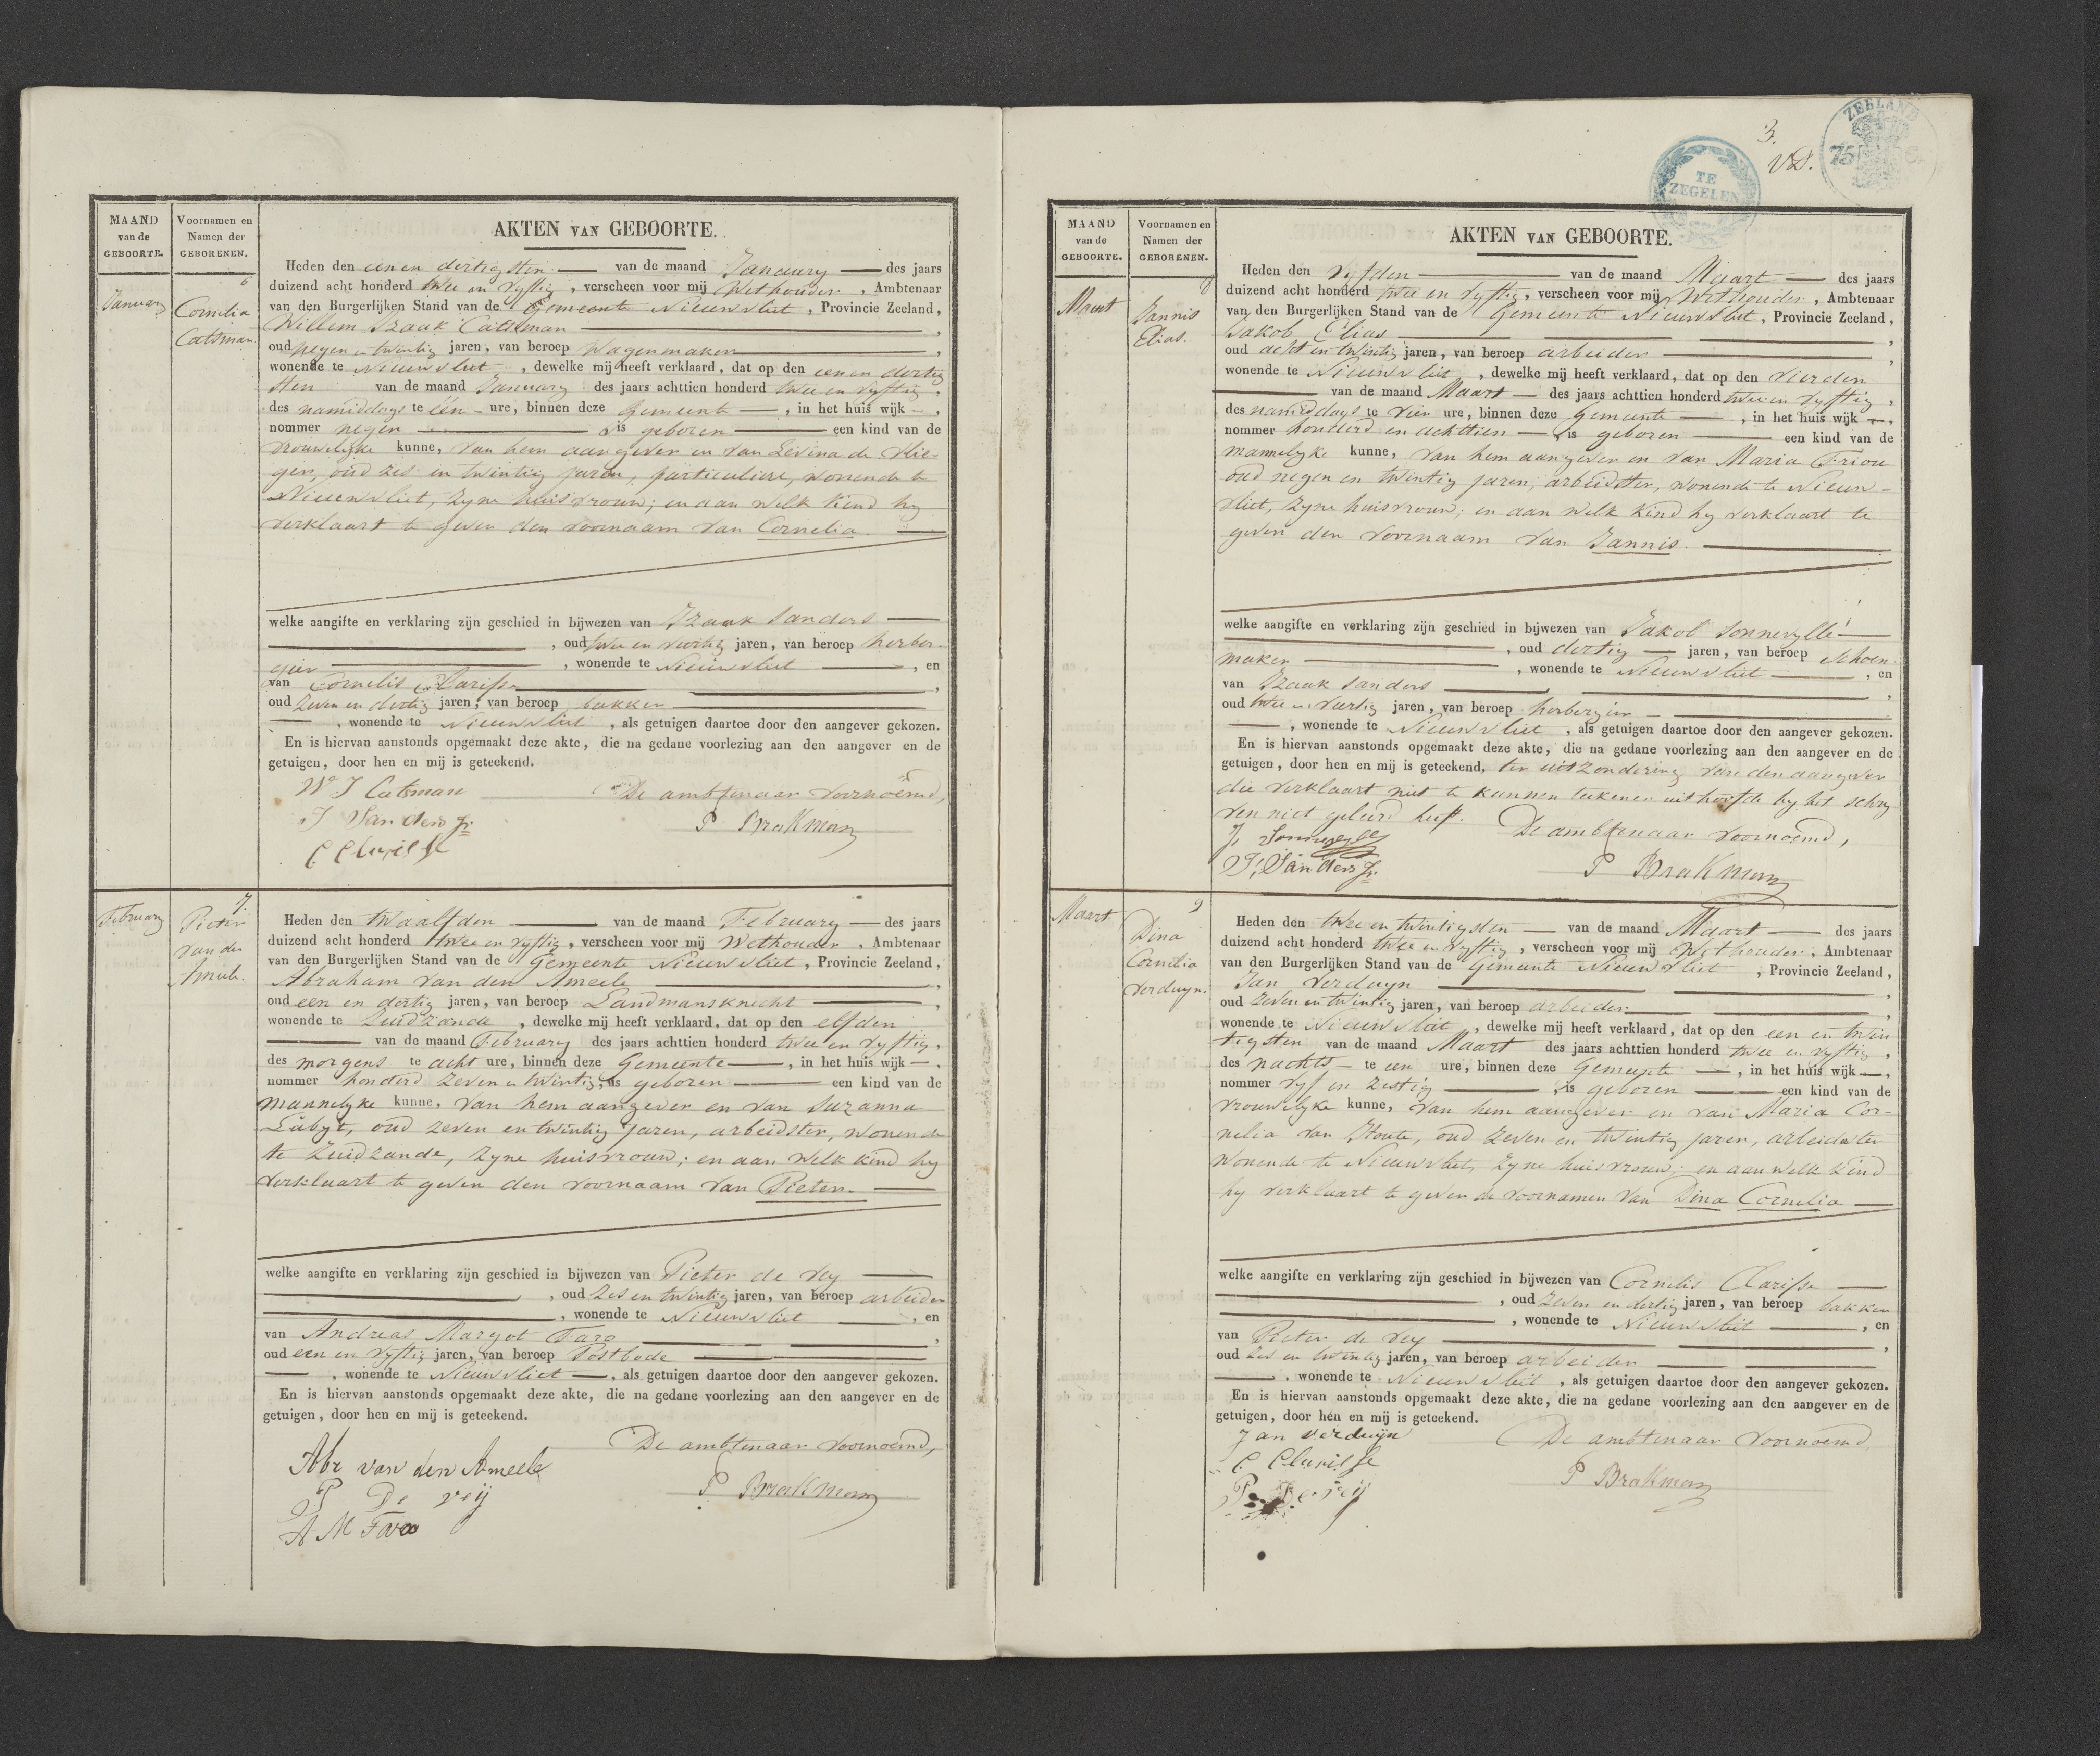 MAAND
van de
GEBOORTE.
Voornamen en
Namen der
GEBORENEN.
AKTEN VAN GEBOORTE.
January
6
Cornelia
Catsman.
Heden den eenen dertigsten van de maand January des jaars
duizend acht honderd twee en vyftig, verscheen voor mij Wethouder, Ambtenaar
van den Burgerlijken Stand van de Gemeente Nieuwvliet, Provincie Zeeland,
Willem Izaak Catsman,
oud negen en twintig jaren, van beroep Wagenmaker,
wonende te Nieuwvliet, dewelke mij heeft verklaard, dat op den eenen dertig
sten van de maand January des jaars achttien honderd twee en vyftig,
des namiddags te één ure, binnen deze Gemeente, in het huis wijk —,
nommer negen, is geboren een kind van de
vrouwelyke kunne, van hem aangever en van Levina de Vlie-
ger, oud zes en twintig jaren, particuliere, wonende te
Nieuwvliet, zyne huisvrouw; en aan welk kind hy
verklaart te geven den voornaam van Cornelia.
welke aangifte en verklaring zijn geschied in bijwezen van Izaak Sanders
, oud twee en veertig jaren, van beroep herber-
gier, wonende te Nieuwvliet, en
van Cornelis Clarisse,
oud zeven en dertig jaren, van beroep bakker
, wonende te Nieuwvliet, als getuigen daartoe door den aangever gekozen.
En is hiervan aanstonds opgemaakt deze akte, die na gedane voorlezing aan den aangever en de
getuigen, door hen en mij is geteekend.
Wm I Catsman
De ambtenaar voornoemd,
I Sanders Jr.
P Brakman
C Clarisse
February
7.
Pieter
van den
Ameele.
Heden den twaalfden van de maand February des jaars
duizend acht honderd twee en vyftig, verscheen voor mij Wethouder, Ambtenaar
van den Burgerlijken Stand van de Gemeente Nieuwvliet, Provincie Zeeland,
Abraham van den Ameele,
oud een en dertig jaren, van beroep Landmansknecht,
wonende te Zuidzande, dewelke mij heeft verklaard, dat op den elfden
van de maand February des jaars achttien honderd twee en vyftig,
des morgens te acht ure, binnen deze Gemeente, in het huis wijk —,
nommer honderd zeven en twintig, is geboren een kind van de
mannelyke kunne, van hem aangever en van Suzanna
Labyt, oud zeven en twintig jaren, arbeidster, wonende
te Zuidzande, zyne huisvrouw; en aan welk kind hy
verklaart te geven den voornaam van Pieter.
welke aangifte en verklaring zijn geschied in bijwezen van Pieter de Vey
, oud zes en twintig jaren, van beroep arbeider
, wonende te Nieuwvliet, en
van Andreas Margot Faro,
oud een en vyftig jaren, van beroep Postbode
, wonende te Nieuwvliet, als getuigen daartoe door den aangever gekozen.
En is hiervan aanstonds opgemaakt deze akte, die na gedane voorlezing aan den aangever en de
getuigen, door hen en mij is geteekend.
De ambtenaar voornoemd,
Abr van den Ameele
P De veij
P Brakman
A M Faro
3.
TE
ZEGELEN
ZEELAND
75
MAAND
van de
GEBOORTE.
Voornamen en
Namen der
GEBORENEN.
AKTEN VAN GEBOORTE.
Maart
8
Jannis
Elias.
Heden den vyfden van de maand Maart des jaars
duizend acht honderd twee en vyftig, verscheen voor mij Wethouder, Ambtenaar
van den Burgerlijken Stand van de Gemeente Nieuwvliet, Provincie Zeeland,
Jakob Elias,
oud acht en twintig jaren, van beroep arbeider,
wonende te Nieuwvliet, dewelke mij heeft verklaard, dat op den vierden
van de maand Maart des jaars achttien honderd twee en vyftig,
des namiddags te vier ure, binnen deze Gemeente, in het huis wijk —,
nommer honderd en achttien, is geboren een kind van de
mannelyke kunne, van hem aangever en van Maria Friou
oud negen en twintig jaren, arbeidster, wonende te Nieuw-
vliet, zyne huisvrouw; en aan welk kind hy verklaart te
geven den voornaam van Jannis.
welke aangifte en verklaring zijn geschied in bijwezen van Jakob Sonnevylle
, oud dertig jaren, van beroep schoen-
maker, wonende te Nieuwvliet, en
van Izaak Sanders,
oud twee en veertig jaren, van beroep herbergier
, wonende te Nieuwvliet, als getuigen daartoe door den aangever gekozen.
En is hiervan aanstonds opgemaakt deze akte, die na gedane voorlezing aan den aangever en de
getuigen, door hen en mij is geteekend, ter uitzondering van den aangever
die verklaart niet te kunnen teekenen uit hoofde hy het schry-
ven niet geleerd heeft.
De ambtenaar voornoemd,
J. Sonnevylle
I. Sanders Jr.
P Brakman
Maart
9
Dina
Cornelia
Verduyn.
Heden den twee en twintigsten van de maand Maart des jaars
duizend acht honderd twee en vyftig, verscheen voor mij Wethouder, Ambtenaar
van den Burgerlijken Stand van de Gemeente Nieuwvliet, Provincie Zeeland,
Jan Verduyn,
oud zeven en twintig jaren, van beroep arbeider,
wonende te Nieuwvliet, dewelke mij heeft verklaard, dat op den een en twin
tigsten van de maand Maart des jaars achttien honderd twee en vyftig,
des nachts te een ure, binnen deze Gemeente, in het huis wijk —,
nommer vyf en zestig, is geboren een kind van de
vrouwelyke kunne, van hem aangever en van Maria Cor-
nelia van Houte, oud zeven en twintig jaren, arbeidster
wonende te Nieuwvliet, zyne huisvrouw; en aan welk kind
hy verklaart te geven de voornamen van Dina Cornelia
welke aangifte en verklaring zijn geschied in bijwezen van Cornelis Clarisse
, oud zeven en dertig jaren, van beroep bakker
, wonende te Nieuwvliet, en
van Pieter de Vey,
oud zes en twintig jaren, van beroep arbeider
, wonende te Nieuwvliet, als getuigen daartoe door den aangever gekozen.
En is hiervan aanstonds opgemaakt deze akte, die na gedane voorlezing aan den aangever en de
getuigen, door hen en mij is geteekend.
Jan verduijn
De ambtenaar voornoemd,
C Clarisse
P De veij
P Brakman